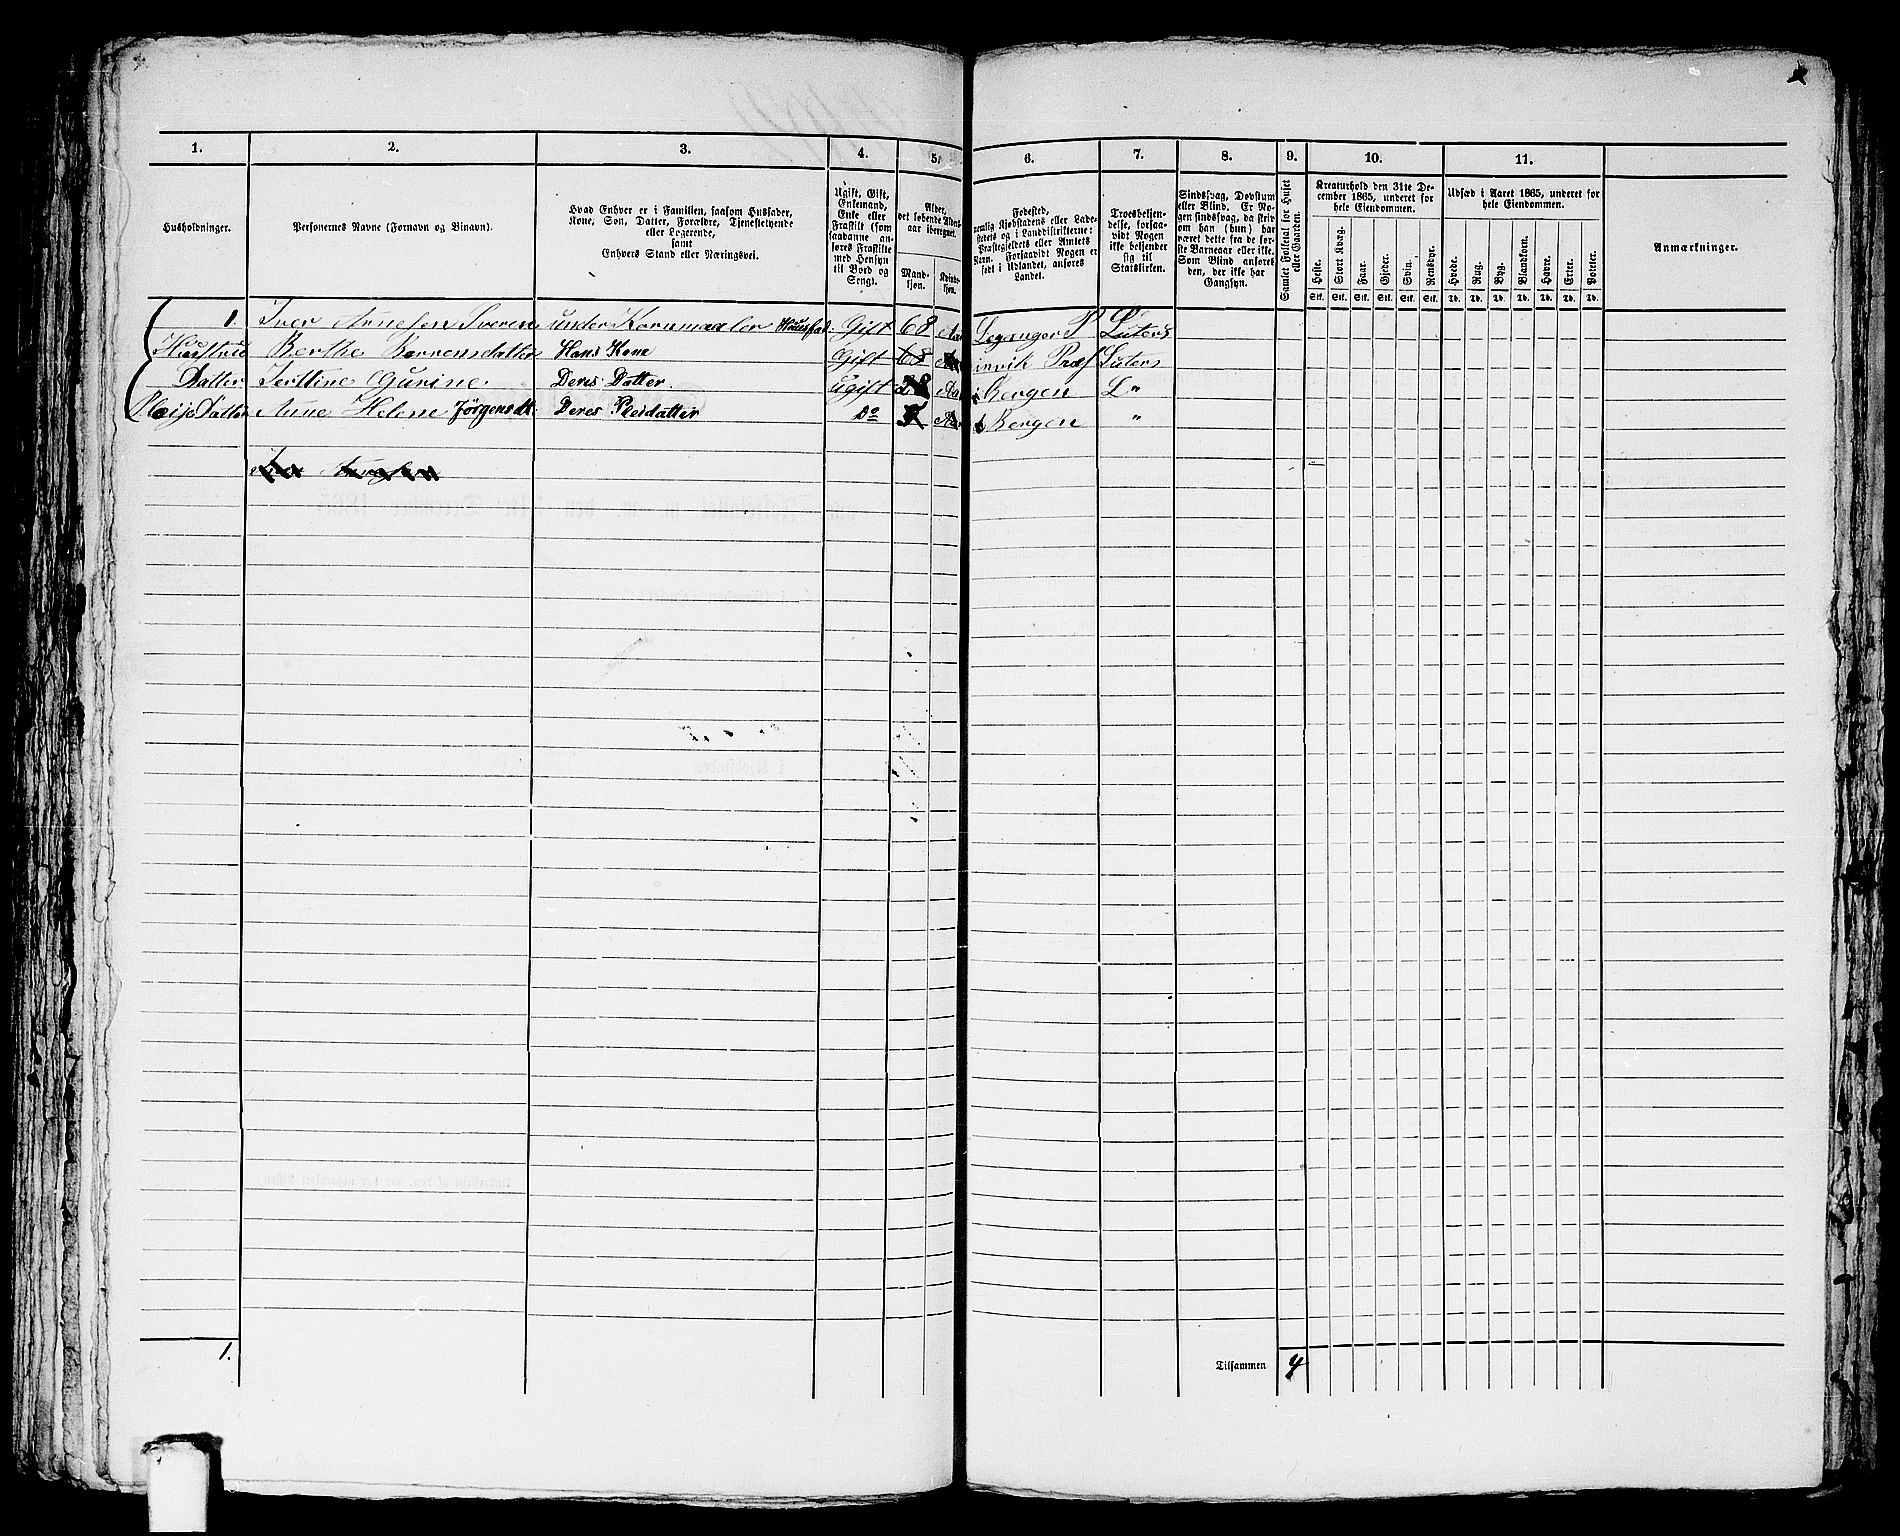 1. 2. 3. 4. 5. 6. 7. 8. 9. 10. 11.
Husholdninger.
Personernes Navne (Fornavn og Binavn).
Hvad Enhver er i Familien, saasom Husfader,
Kone, Søn, Datter, Forældre, Tjenestetyende
eller Logerende,
samt
Enhvers Stand eller Næringsvei.
Ugift, Gift,
Enkemand,
Enke eller
Fraskilt (som
saadanne an-
føres Fraskilte
med Hensyn
til Bord og
Seng).
Alder,
det løbende Alders-
aar iberegnet.
Mand-
kjøn.
Kvinde-
kjøn.
Fødested,
nemlig Kjøbstadens eller Lade-
stedets og i Landdistrikterne:
Præstegjeldets eller Amtets
Navn. Forsaavidt Nogen er
født i Udlandet, anføres
Landet.
Troesbekjen-
delse, forsaa-
vidt Nogen
ikke bekjender
sig til
Statskirken.
Sindssvag, Døvstum
eller Blind. Er No-
gen sindssvag, da skriv
om han (hun) har
været dette fra de før-
ste Barneaar eller ikke.
Som Blind ansøres
den, der ikke har
Gangsyn.
Samlet Folketal for Huset
eller Gaarden.
Kreaturhold den 31te De-
cember 1865, underet for
hele Eiendommen.
Heste. Stort Kvæg. Faar. Gjeder. Svin. Rensdyr.
Stk. Stk. Stk. Stk. Stk. Stk.
Udsæd i Aaret 1865, underet for
hele Eiendommen.
Hvede. Rug. Byg. Blandkorn. Havre. Erter. Poteter.
Td. Td. Td. Td. Td. Td. Td.
Anmærkninger.
1. Iver Arnesen Sveren under Kornmaaler Huusfad. Gift 68 Aar Leganger P Luters
Hustru Berthe Bernensdatter Hans Kone Gift 68 Aar invik Præs Luters
Datter Jerstine Gurine Deres Datter. ugift 28 Aar i Bergen L "
Pleije Datter Anne Helene Jörgensdt. Deres Pleidatter Do Aar Bergen "
1.
Tilsammen 4